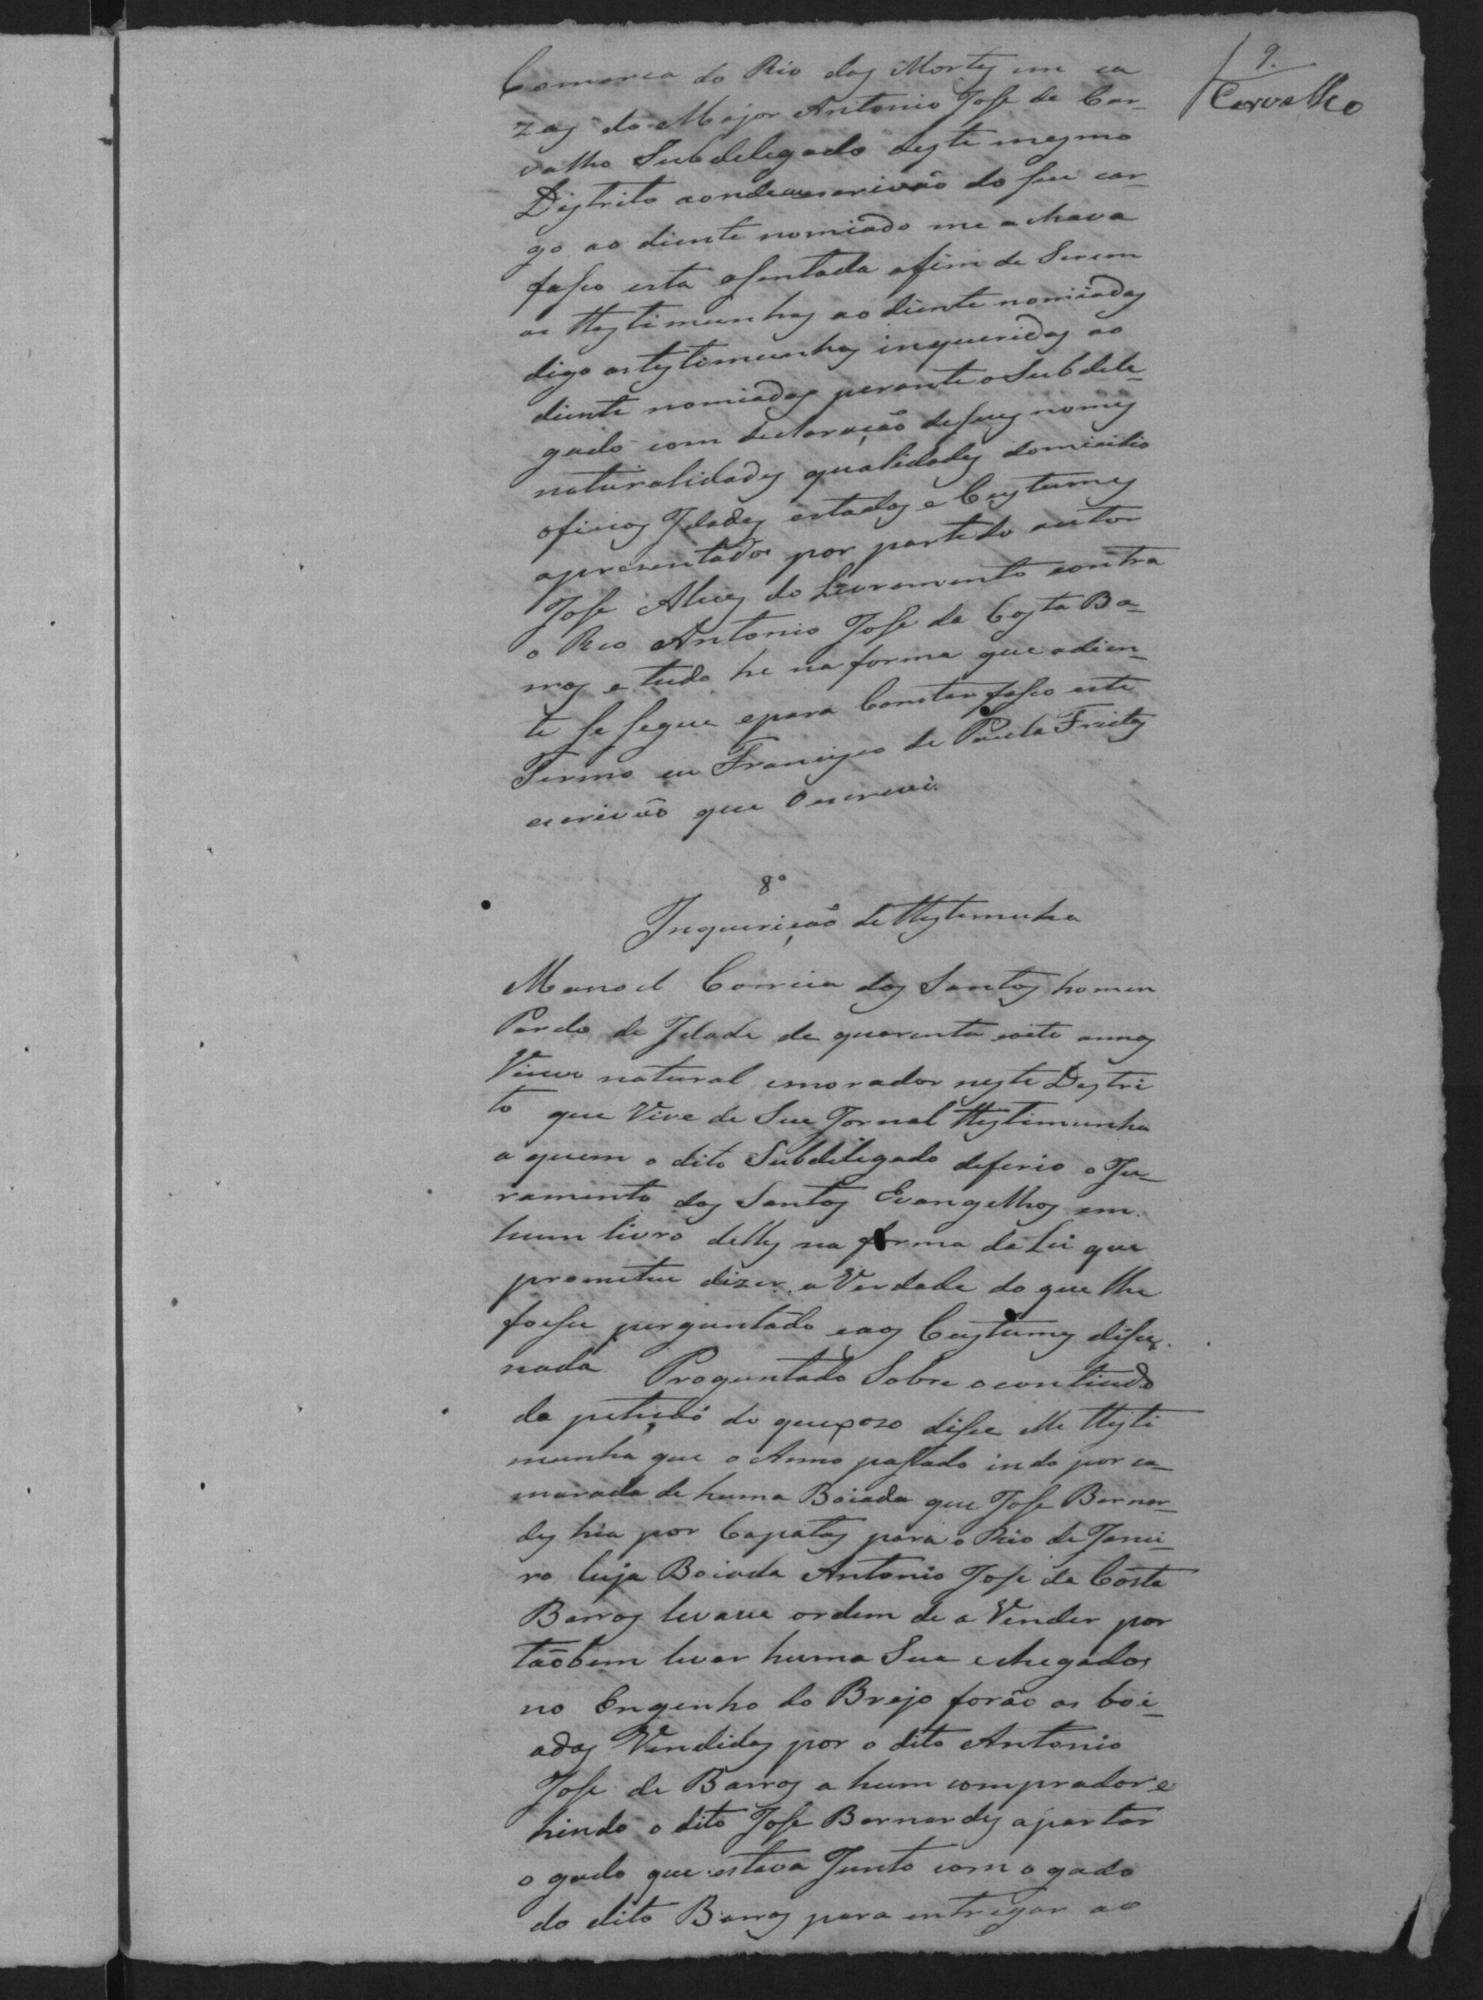 9.
Carvalho
Comarca do Rio das Mortes em ca
zas do Major Antonio Jose de Car-
valho Subdelegado deste mesmo
Destrito aonde eu escrivão do seu car-
go ao diente nomiado me achava
fasso esta asentada afim de Serem
as testimunhas ao diente nomiadas
digo as testimunhas inqueridas ao
diente nomiadas perante o Subdele-
gado com declaração de seus nomes
naturalidades qualidades domicilio
oficios Idades estados e Custumes
aprezentados por parte do autor
Jose Alves do Livramento contra
o Reo Antonio Jose da Costa Ba-
rros e tudo he na forma que adien-
te se segue e para Constar fasso este
Termo eu Francisco de Paula Freitas
escrivão que o escrevi.
8º
Inquerição de testemunha
Manoel Correia dos Santos homem
Pardo de Idade de quarenta e oito annos
Viuvo natural e morador neste Destri
to que Vive de Seu Jornal testimunha
a quem o dito Subdeligado deferio o Ju-
ramento dos Santos Evangelhos em
hum livro delles na forma da Lei que
prometeu dizer a Verdade do que lhe
fosse perguntado e aos Custumes disse
nada Proguntado Sobre o contiudo
da petição do queixozo disse elle testi
munha que o Anno passado indo por ca-
marada de huma Boiada que Jose Bernar-
des hia por Capatas para o Rio de Janei-
ro Cuja Boiada Antonio Jose da Costa
Barros levava ordem de a Vender por
taõbem levar huma Sua e chegados
no Engenho do Brejo forão as boi-
adas Vendidas por o dito Antonio
Jose de Barros a hum comprador e
hindo o dito Jose Bernardes apartar
o gado que estava Junto com o gado
do dito Barros para entregar ao